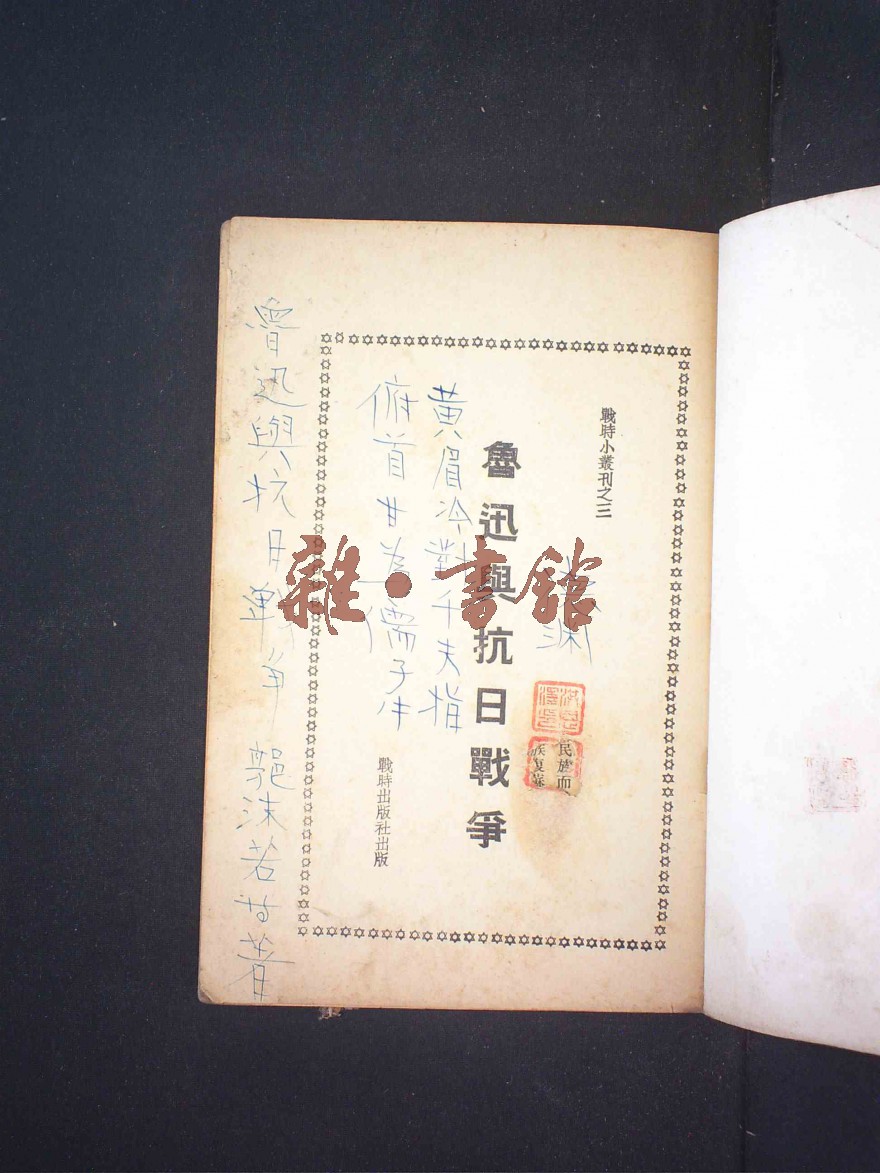 戰時小叢刊之三
魯迅與抗日戰爭
民族而
族复蘇
黄眉冷對千夫指
俯首甘为孺子牛
戰時出版社出版
魯迅與抗日战争 郭沫若等著
雜·書館